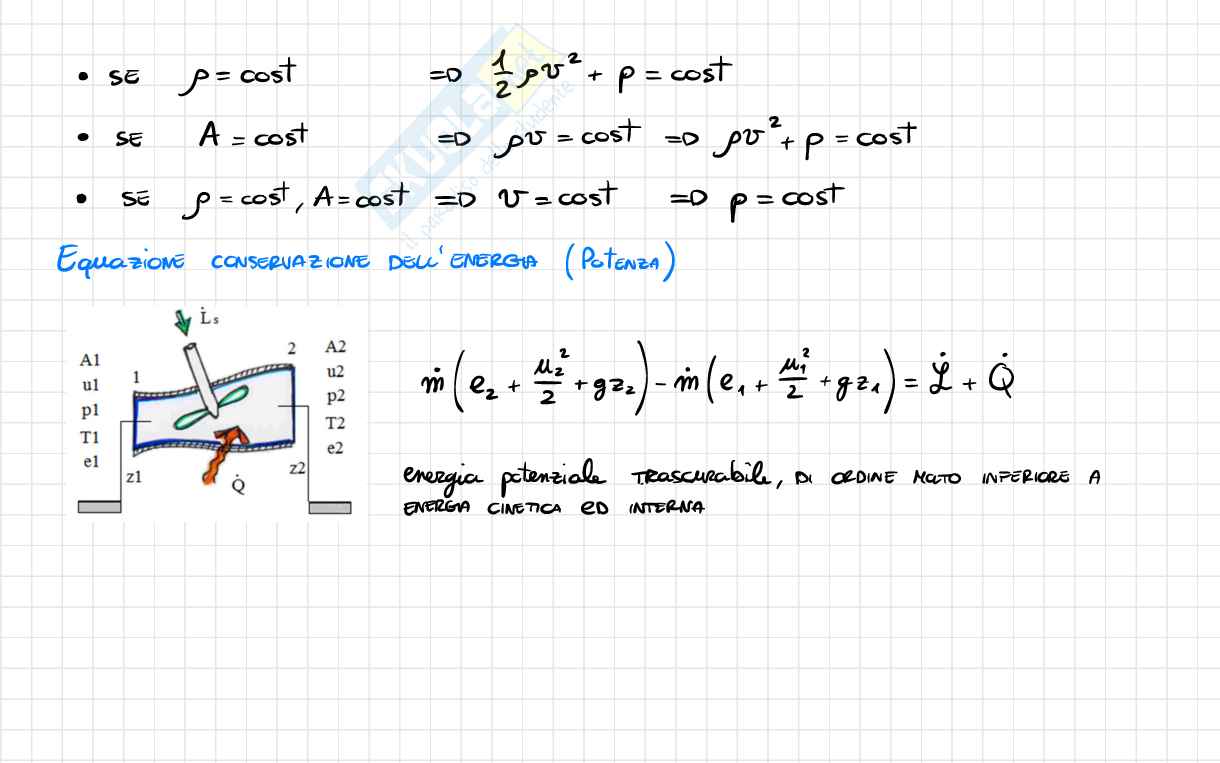 • SE ρ = cost => 1/2 ρv² + p = cost
• SE A = cost => ρv = cost => ρv² + p = cost
• SE ρ = cost, A = cost => v = cost => p = cost
EQUAZIONE CONSERVAZIONE DELL'ENERGIA (POTENZA)
L̇s
A1
u1
p1
T1
e1
1
z1
Q̇
2
z2
A2
u2
p2
T2
e2
ṁ(e₂ + u₂²/2 + gz₂) - ṁ(e₁ + u₁²/2 + gz₁) = ℒ̇ + Q̇
energia potenziale TRASCURABILE, DI ORDINE MOLTO INFERIORE A
ENERGIA CINETICA ED INTERNA
SKUOLA.net